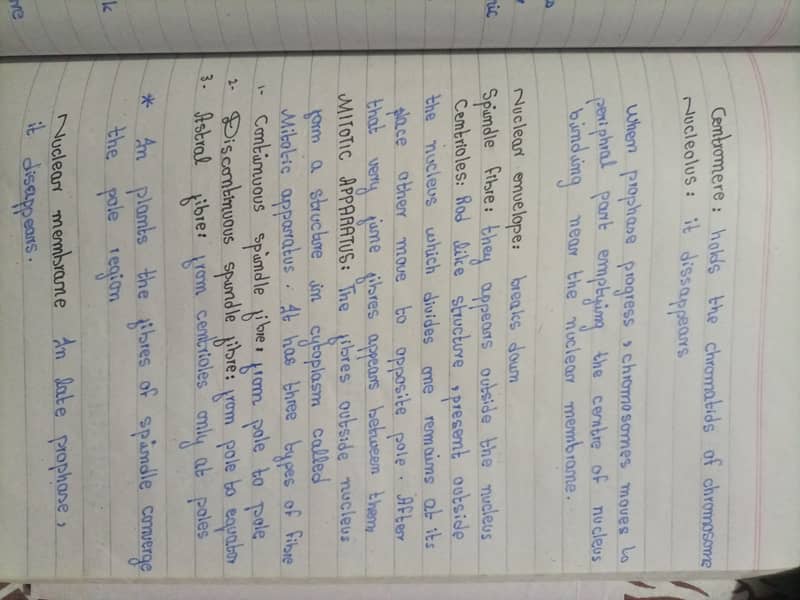 Centromere: holds the chromatids of chromosome
Nucleolus: it dissappears
When prophase progress, chromosomes moves to
periphral part emptying the centre of nucleus
binding near the nuclear membrane.
Nuclear envelope: breaks down
Spindle fibre: they appears outside the nucleus
Centrioles: Rod like structure, present outside
the nucleus which divides one remains at its
place other move to opposite pole. After
that very fine fibres appears between them
MITOTIC APPARATUS: The fibres outside nucleus
form a structure in cytoplasm called
Mitotic apparatus. It has three types of fibre
1- Continuous spindle fibre: from pole to pole
2- Discontinuous spindle fibre: from pole to equator
3- Astral fibre: from centrioles only at poles
* In plants the fibres of spindle converge
the pole region
Nuclear membrane In late prophase,
it disappears.